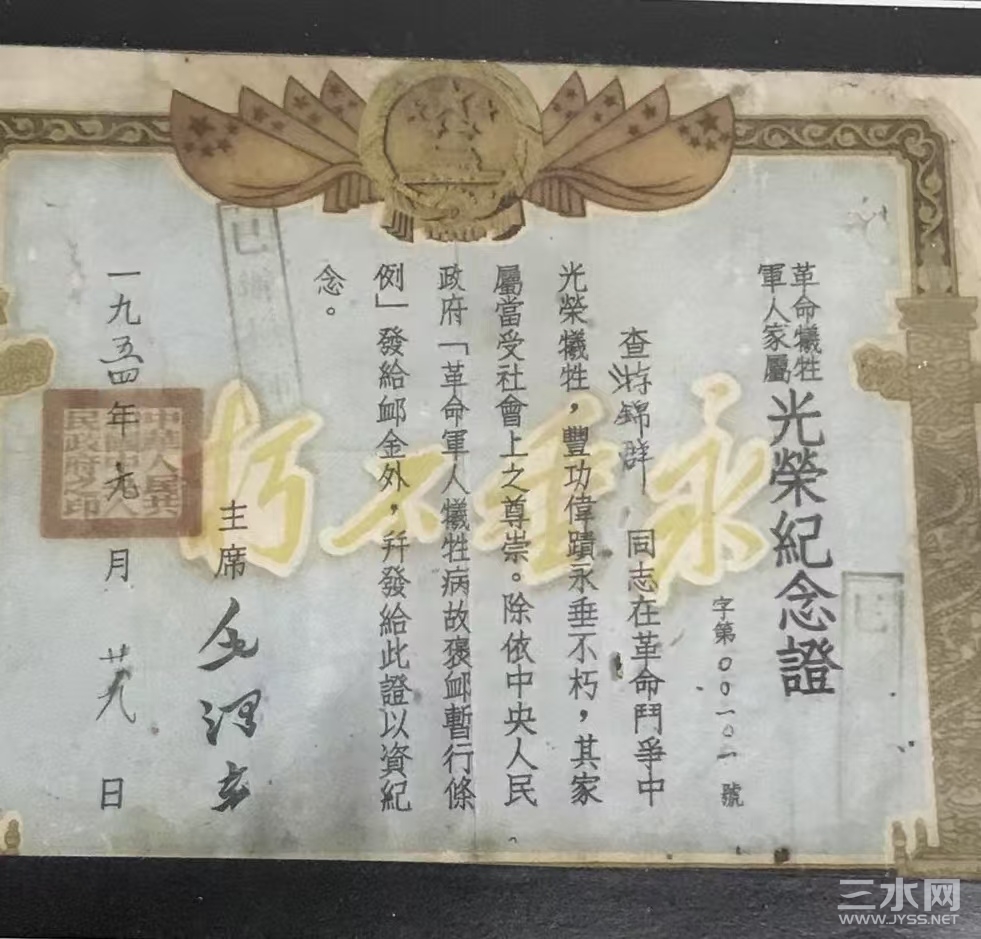 革命犧牲
軍人家屬
光榮紀念證
字第〇〇一〇一號
查游錦群同志在革命鬥爭中
光榮犧牲，豐功偉蹟永垂不朽，其家
屬當受社會上之尊崇。除依中央人民
政府「革命軍人犧牲病故褒卹暫行條
例」發給卹金外，幷發給此證以資紀
念。
主席 毛澤東
一九五四年元月廿九日
永垂不朽
中華人民共
和國中央人
民政府之印
已
已
三水网
WWW.JYSS.NET